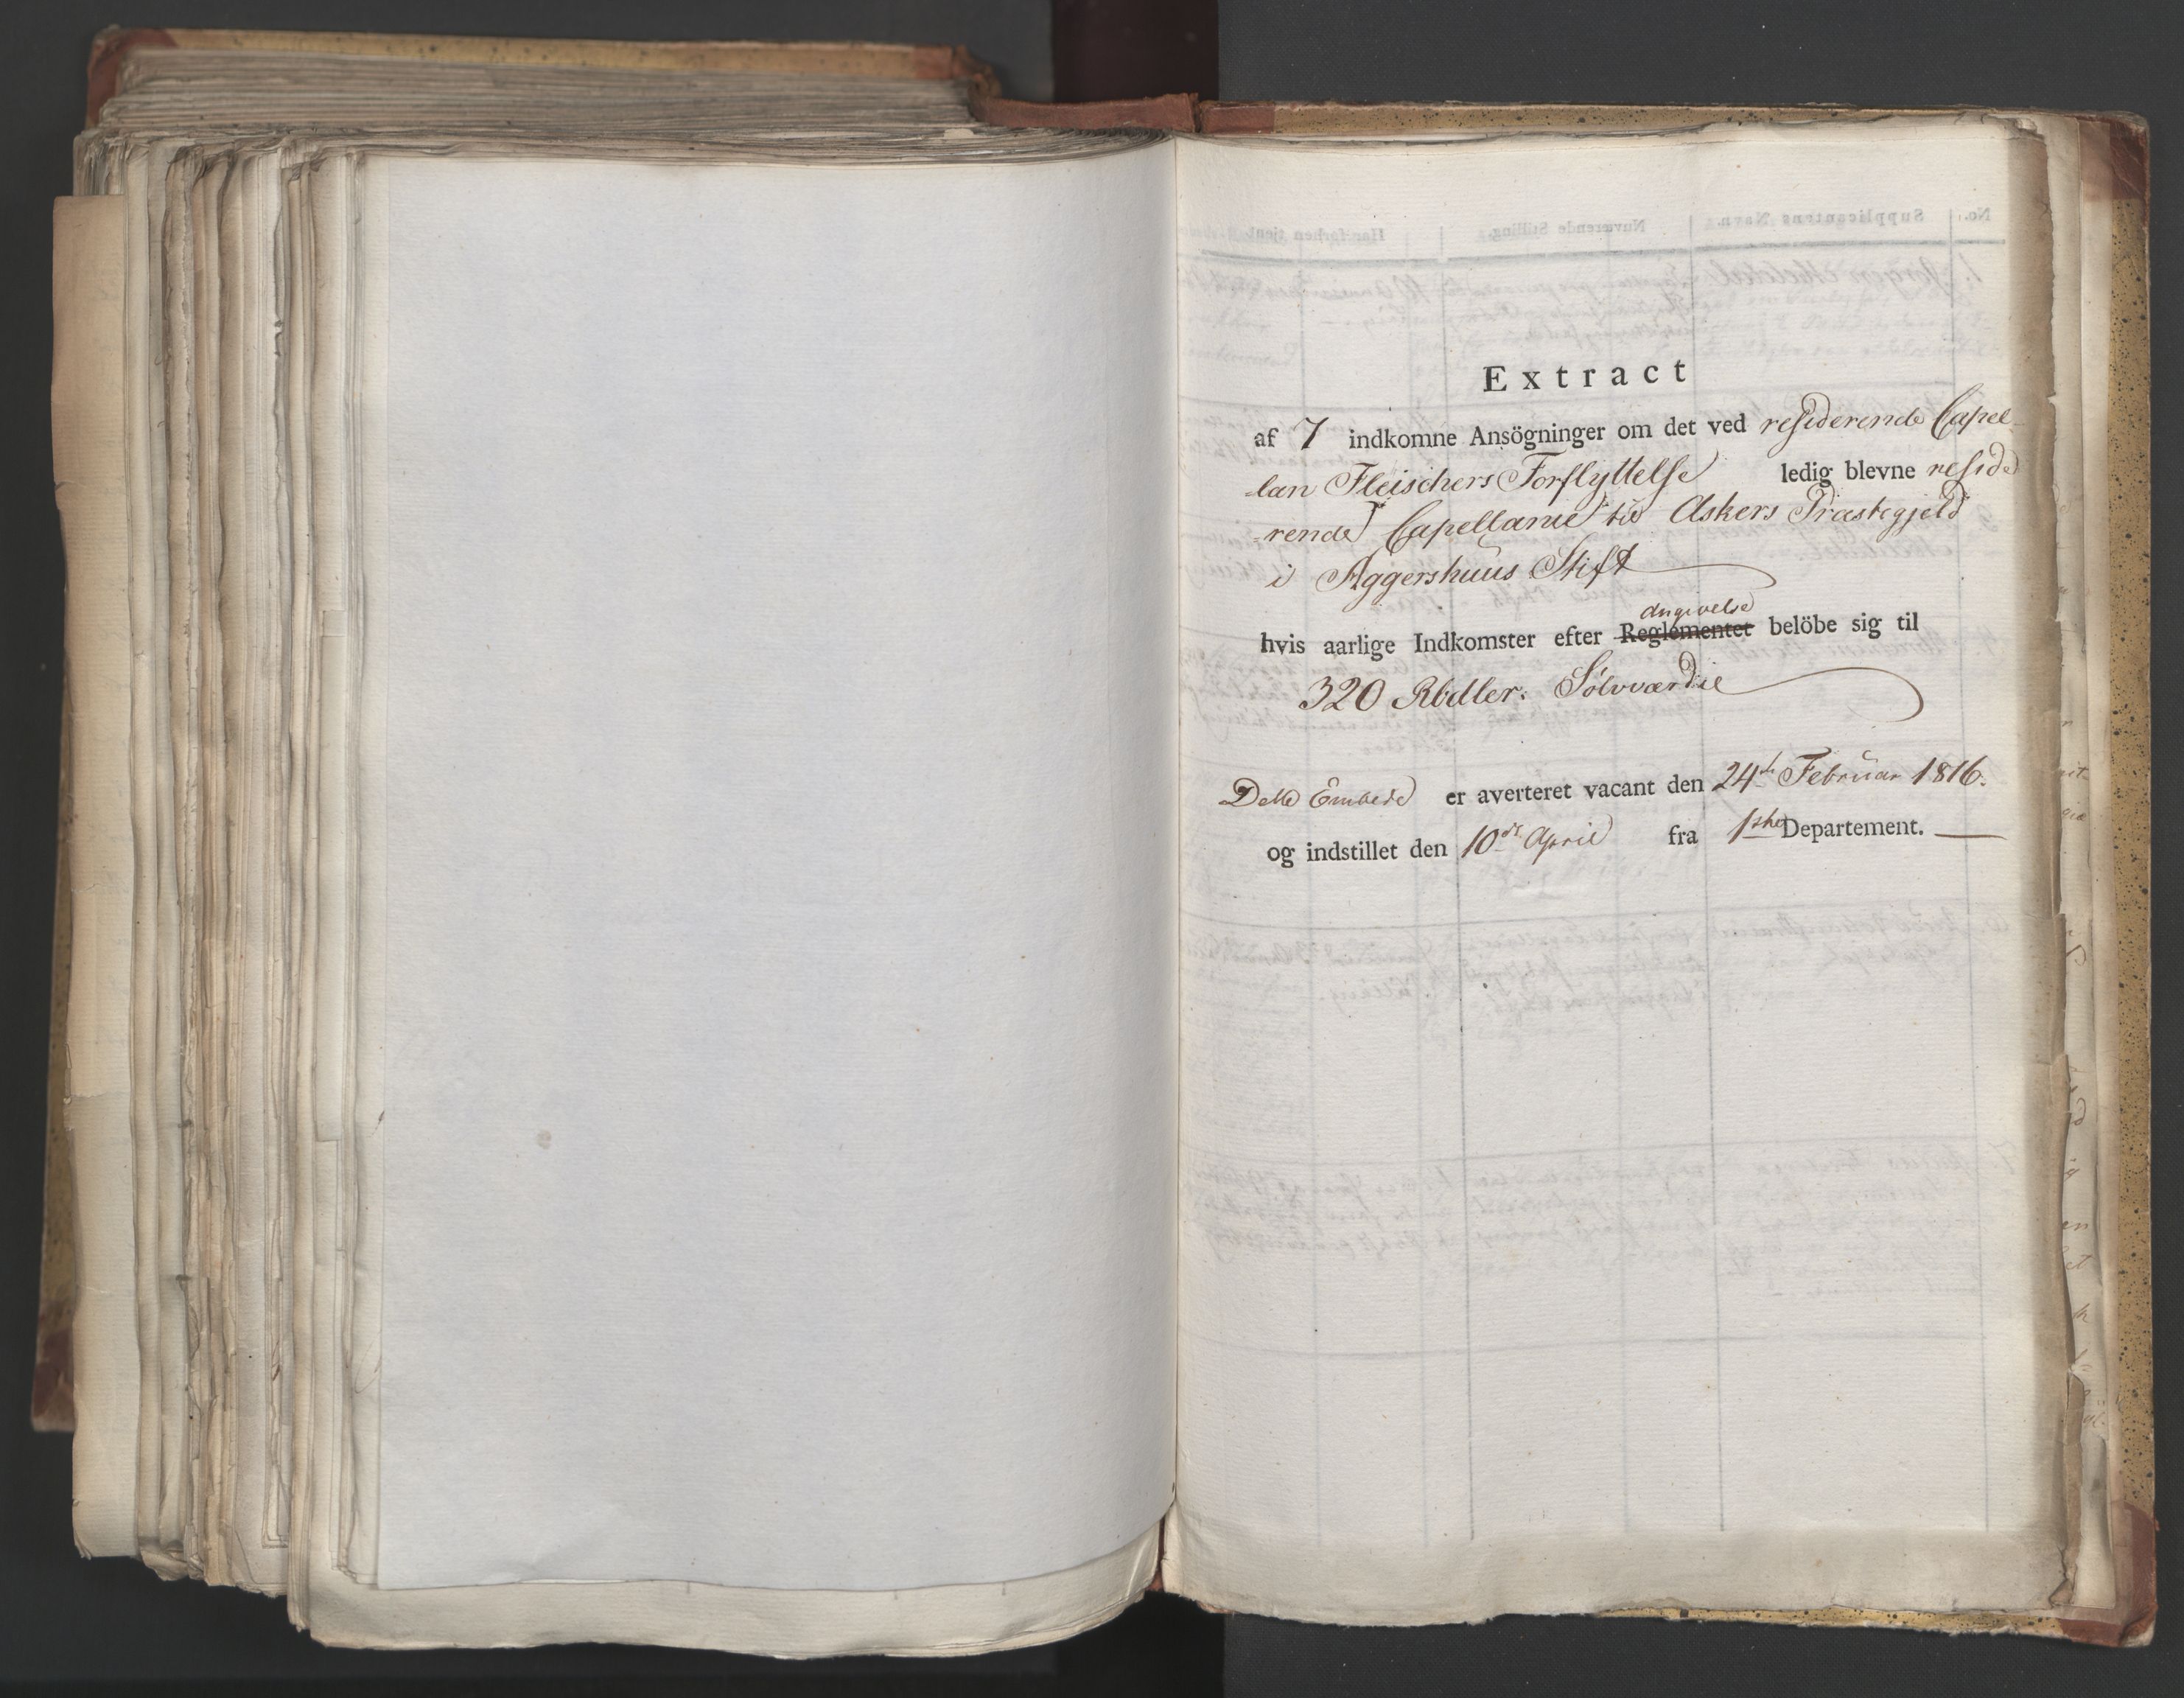 Extract
af 7 indkomne Ansögninger om det ved residerende Capel-
-lan Fleischers Forflyttelse ledig blevne reside
-rende Capellanie til Askers Præstegjeld
i Aggershuus Stift
angivelse
hvis aarlige Indkomster efter Reglementet belöbe sig til
320 Rbdler: Sølvværdie
Dette Embede er averteret vacant den 24de Februar 1816.
og indstillet den 10de April fra 1ste Departement.